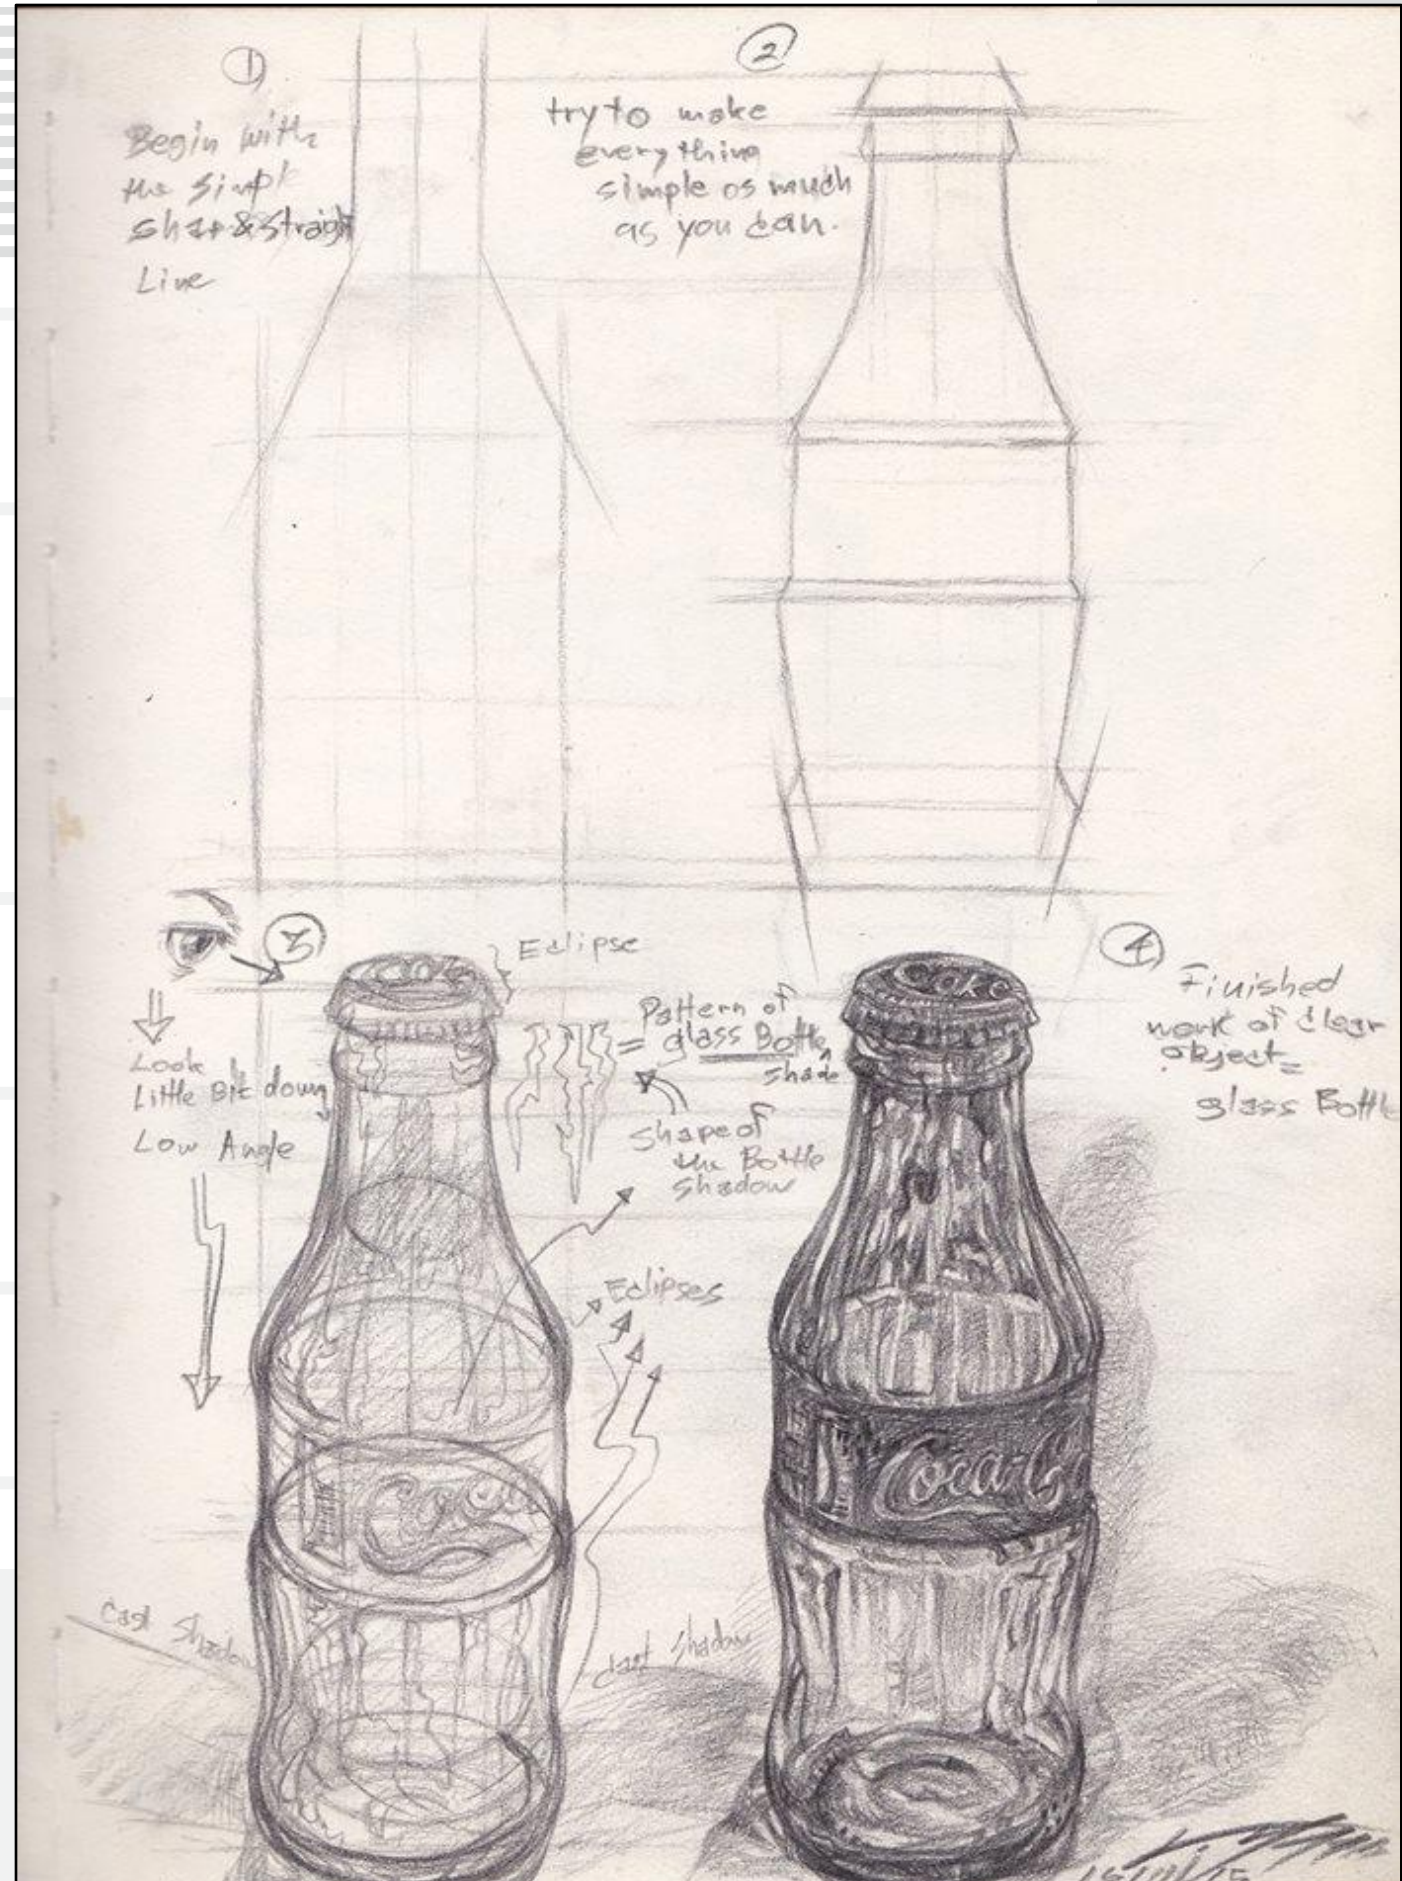 1
Begin with
the simple
shap & straight
Line
2
try to make
everything
simple as much
as you can.
3
Eclipse
Coke
Look
Little Bit down
Low Angle
= Pattern of
glass Bottle
shade
Shape of
the Bottle
Shadow
Eclipses
Coca
Cast Shadow
Cast Shadow
4
Finished
work of clear
object =
glass Bottle
Coke
Coca-Co